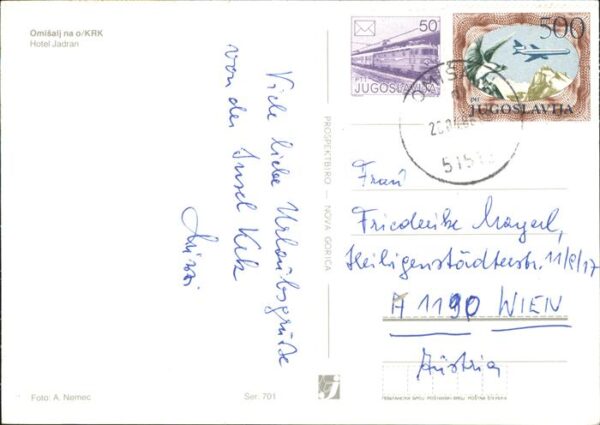 Omišalj na o/KRK
Hotel Jadran
Viele liebe Urlaubsgrüße
von der Insel Krk
50
PTT
JUGOSLAVIJA
500
PTT
JUGOSLAVIJA
OMIŠALJ
51513
PROSPEKTBIRO — NOVA GORICA
Frau
Friederike Mayerl,
Heiligenstädterstr. 11/8/17
A 1190 WIEN
Austria
Foto: A. Nemec
Ser. 701